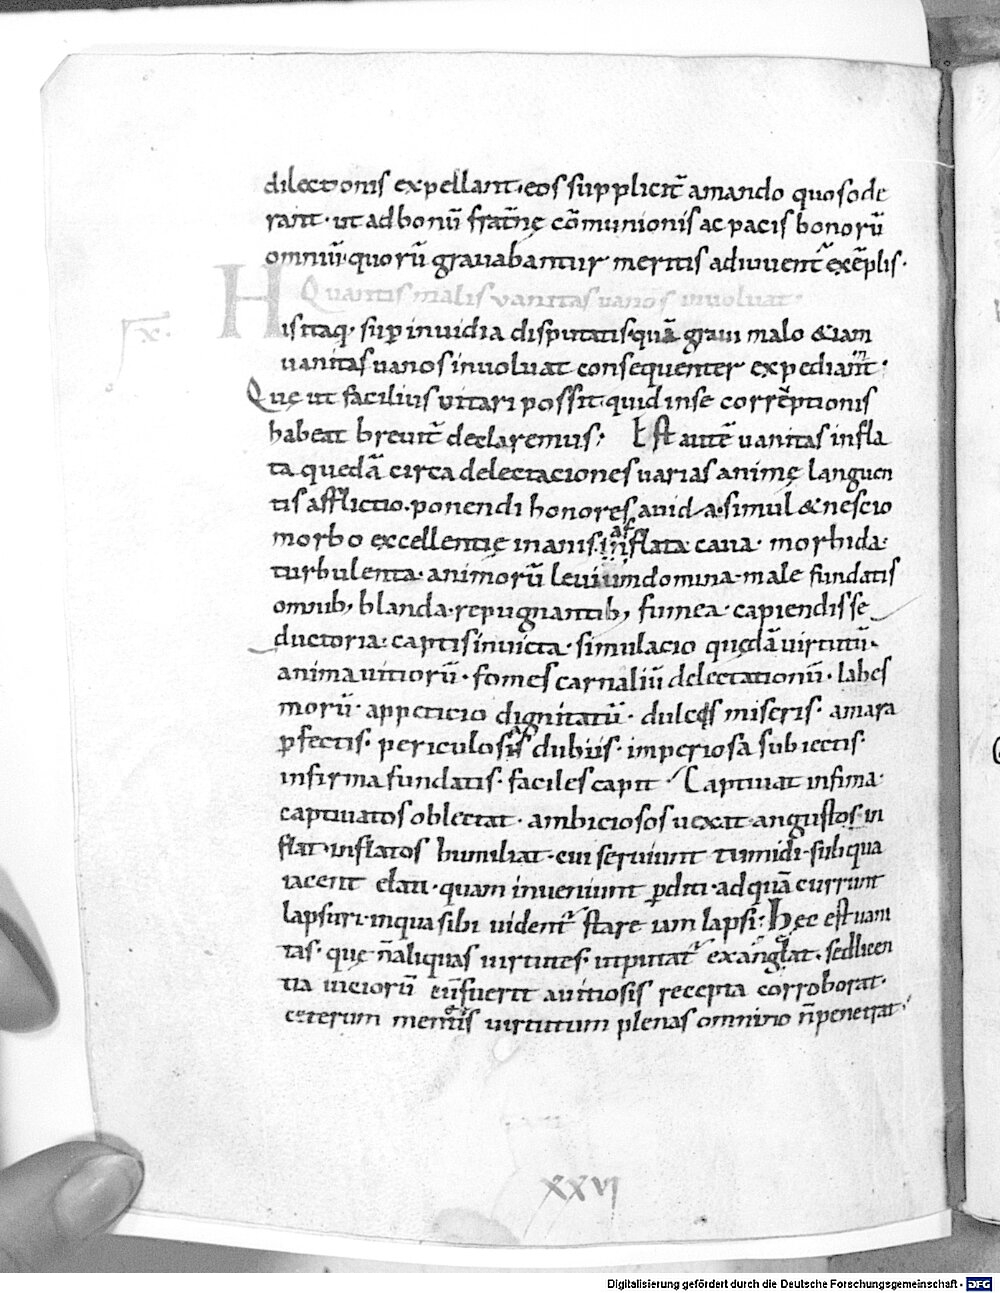 dilectionis expellant. eos suppliciť amando quos ode
rant· ut ad bonū frat̄nę cōmunionis ac pacis bonorū
omniū· quorū grauabantur meritis adiuuent᷑ exēplis·
Quantis malis vanitas uanos inuoluat·
X·
Histaq· sup inuidia disputatis· quā graui malo &iam
uanitas uanos inuoluat consequenter expediam̄·
Quę ut facilius vitari possit· quid in se correptionis
habeat breuit̄ declaremus; Est autē uanitas infla
ta quedā circa delectaciones uarias animę languen
tis afflictio. ponendi honores auida· simul & nescio
morbo excellentię inanis· inflata caua· morbida·
turbulenta· animorū leuium domina· male fundatis
omnib; blanda· repugnantib; fumea· capiendis se
ductoria· captis inuicta· simulacio quędā uirtutū·
anima uitiorū· fomes carnaliū delectationū· labes
morū· appeticio dignitatū· dulcis miseris· amara
ꝑfectis· periculosis dubiis· imperiosa subiectis·
infirma fundatis· faciles capit· Captiuat infima·
captiuatos oblectat· ambiciosos uexat· angustos in
flat· inflatos humiliat· cui seruiunt tumidi· sub qua
iacent elati· quam inueniunt ꝑditi· ad quā currunt
lapsuri· in qua sibi uident᷑ stare iam lapsi· Hęc est uani
tas· quę n̄ aliquas uirtutes· ut putat᷑ exanglat· sed licen
tia uiciorū cū fuerit a uitiosis recepta corroborat·
ceterum mentes uirtutum plenas omnino n̄ penetrat·
XXVI
Digitalisierung gefördert durch die Deutsche Forschungsgemeinschaft - DFG